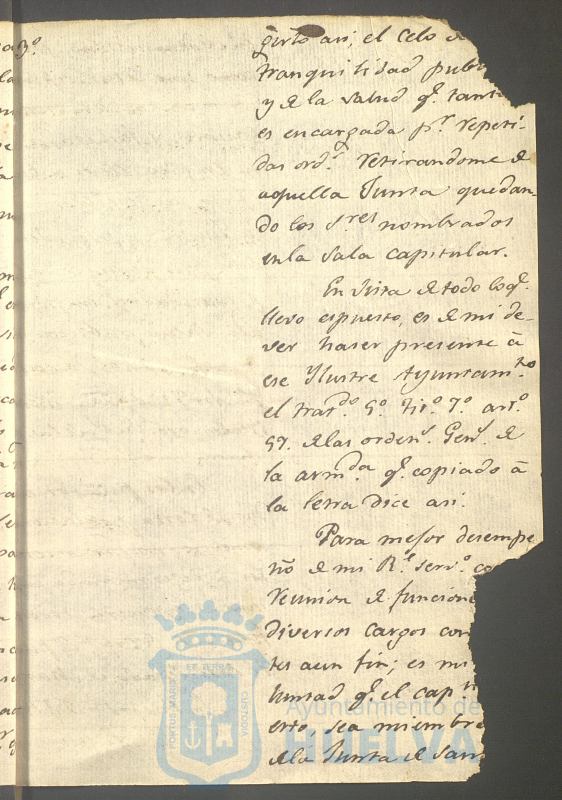 3º
girlo asi, el Celo de
tranquilidad pub
y de la Salud q.e tant
es encargada p.r repeti-
das ord.s Retirandome de
aquella Junta quedan-
do los S.res nombrados
en la Sala capitular.
En vista de todo loq.e
llevo espuesto, es de mi de-
ver haser presente â
ese Ylustre Ayuntam.to
el trat.do 5º tit.o 7º art.o
57. delas orden.s Gen.s de
la arm.da q.e copiado â
la letra dice asi.
Para mejor desempe
ño de mi R.l serv.o co
Reunion de funcione
diversos cargos con
tes aun fin; es mi
luntad q.e el cap.n
erto, sea miembro
dela Junta de San
PORTUS MARIS ET TERRÆ CUSTODIA
Ayuntamiento de
HUELVA